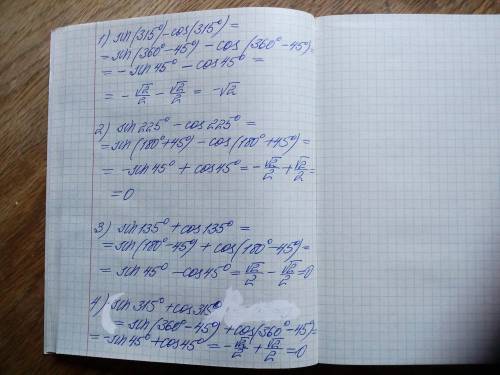 1) sin(315°) - cos(315°) =
= sin(360° - 45°) - cos(360° - 45°) =
= - sin 45° - cos 45° =
= - √2/2 - √2/2 = -√2
2) sin 225° - cos 225° =
= sin(180° + 45°) - cos(180° + 45°) =
= - sin 45° + cos 45° = - √2/2 + √2/2 =
= 0
3) sin 135° + cos 135° =
= sin(180° - 45°) + cos(180° - 45°) =
= sin 45° - cos 45° = √2/2 - √2/2 = 0
4) sin 315° + cos 315°
= sin(360° - 45°) + cos(360° - 45°) =
= - sin 45° + cos 45° = - √2/2 + √2/2 = 0